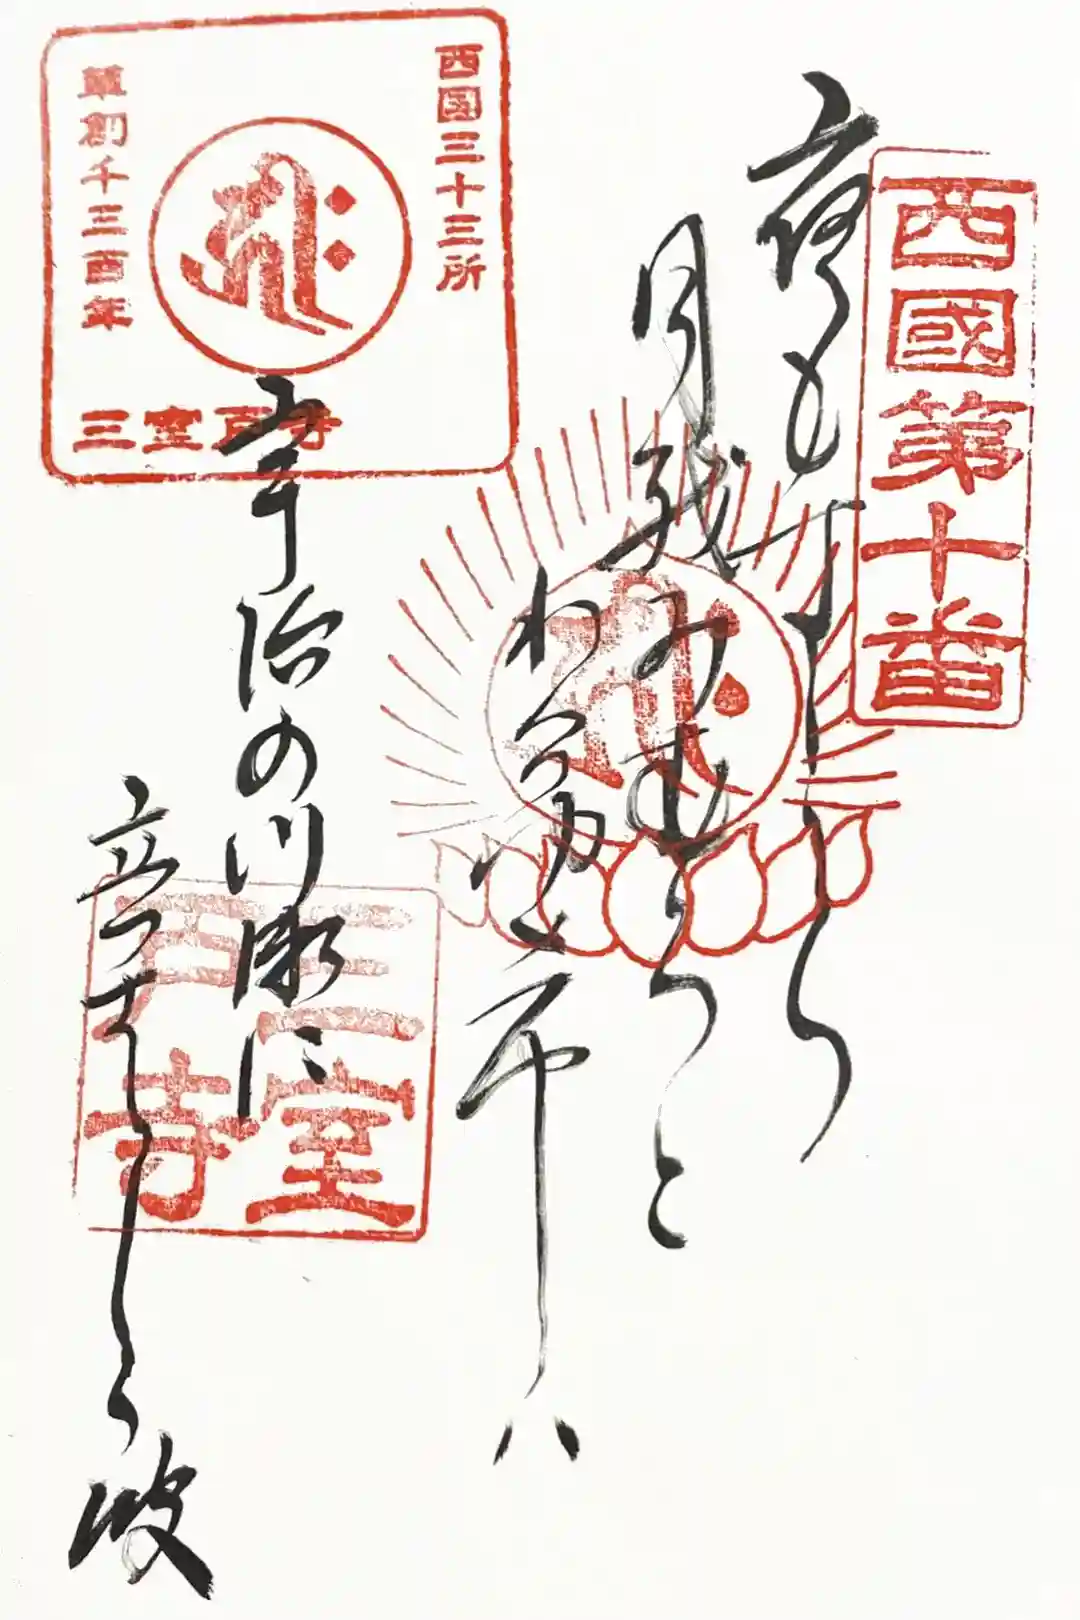 西國第十番
夜もすから
月越みむろと
わけゆけハ
宇治の川瀬に
立つはしら波
西国三十三所
草創千三百年
三室戸寺
三室戸寺